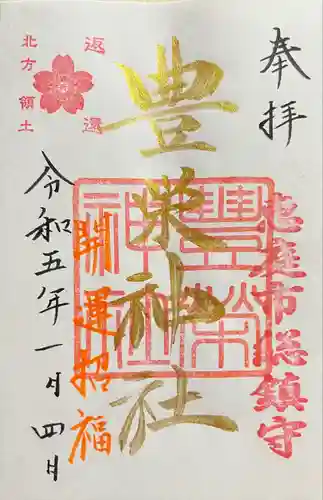 奉拝
恵庭市総鎮守
豊栄神社
豊榮神社
開運招福
返還
北方領土
令和五年一月四日